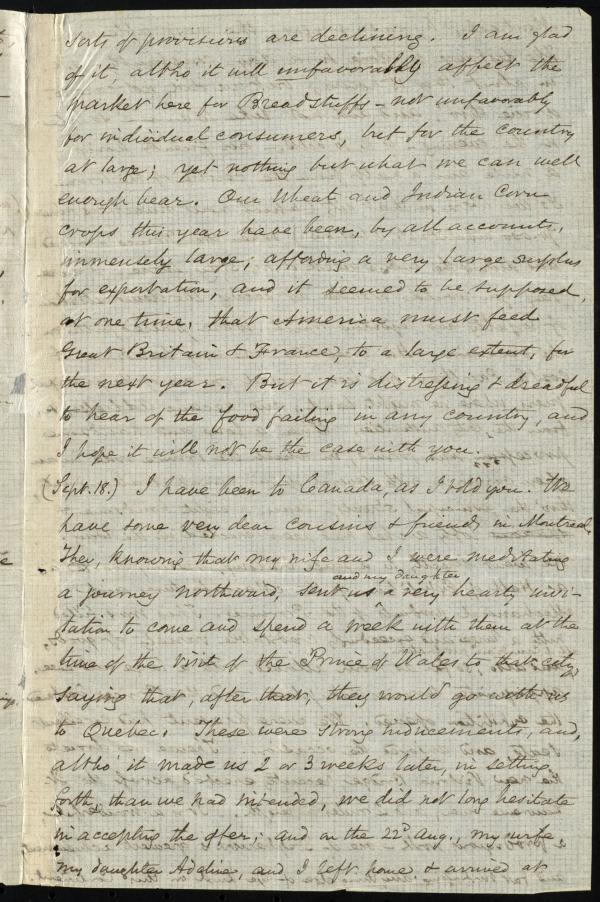 sorts of provisions are declining. I am glad
of it, altho it will unfavorably affect the
market here for Breadstuffs – not unfavorably
for individual consumers, but for the country
at large; yet nothing but what we can well
enough bear. Our Wheat and Indian Corn
crops this year have been, by all accounts,
immensely large; affording a very large surplus
for exportation, and it seemed to be supposed,
at one time, that America must feed
Great Britain & France, to a large extent, for
the next year. But it is distressing & dreadful
to hear of the food failing in any country, and
I hope it will not be the case with you.
(Sept. 18.) I have been to Canada, as I told you. We
have some very dear cousins & friends in Montreal.
They, knowing that my wife and I were meditating
and my daughter
a journey northward, sent us a very hearty invi-
tation to come and spend a week with them at the
time of the visit of the Prince of Wales to that city,
saying that, after that, they would go with us
to Quebec. These were strong inducements, and,
altho' it made us 2 or 3 weeks later, in setting
forth, than we had intended, we did not long hesitate
in accepting the offer; and on the 22d Aug., my wife,
my daughter Adaline, and I left home & arrived at